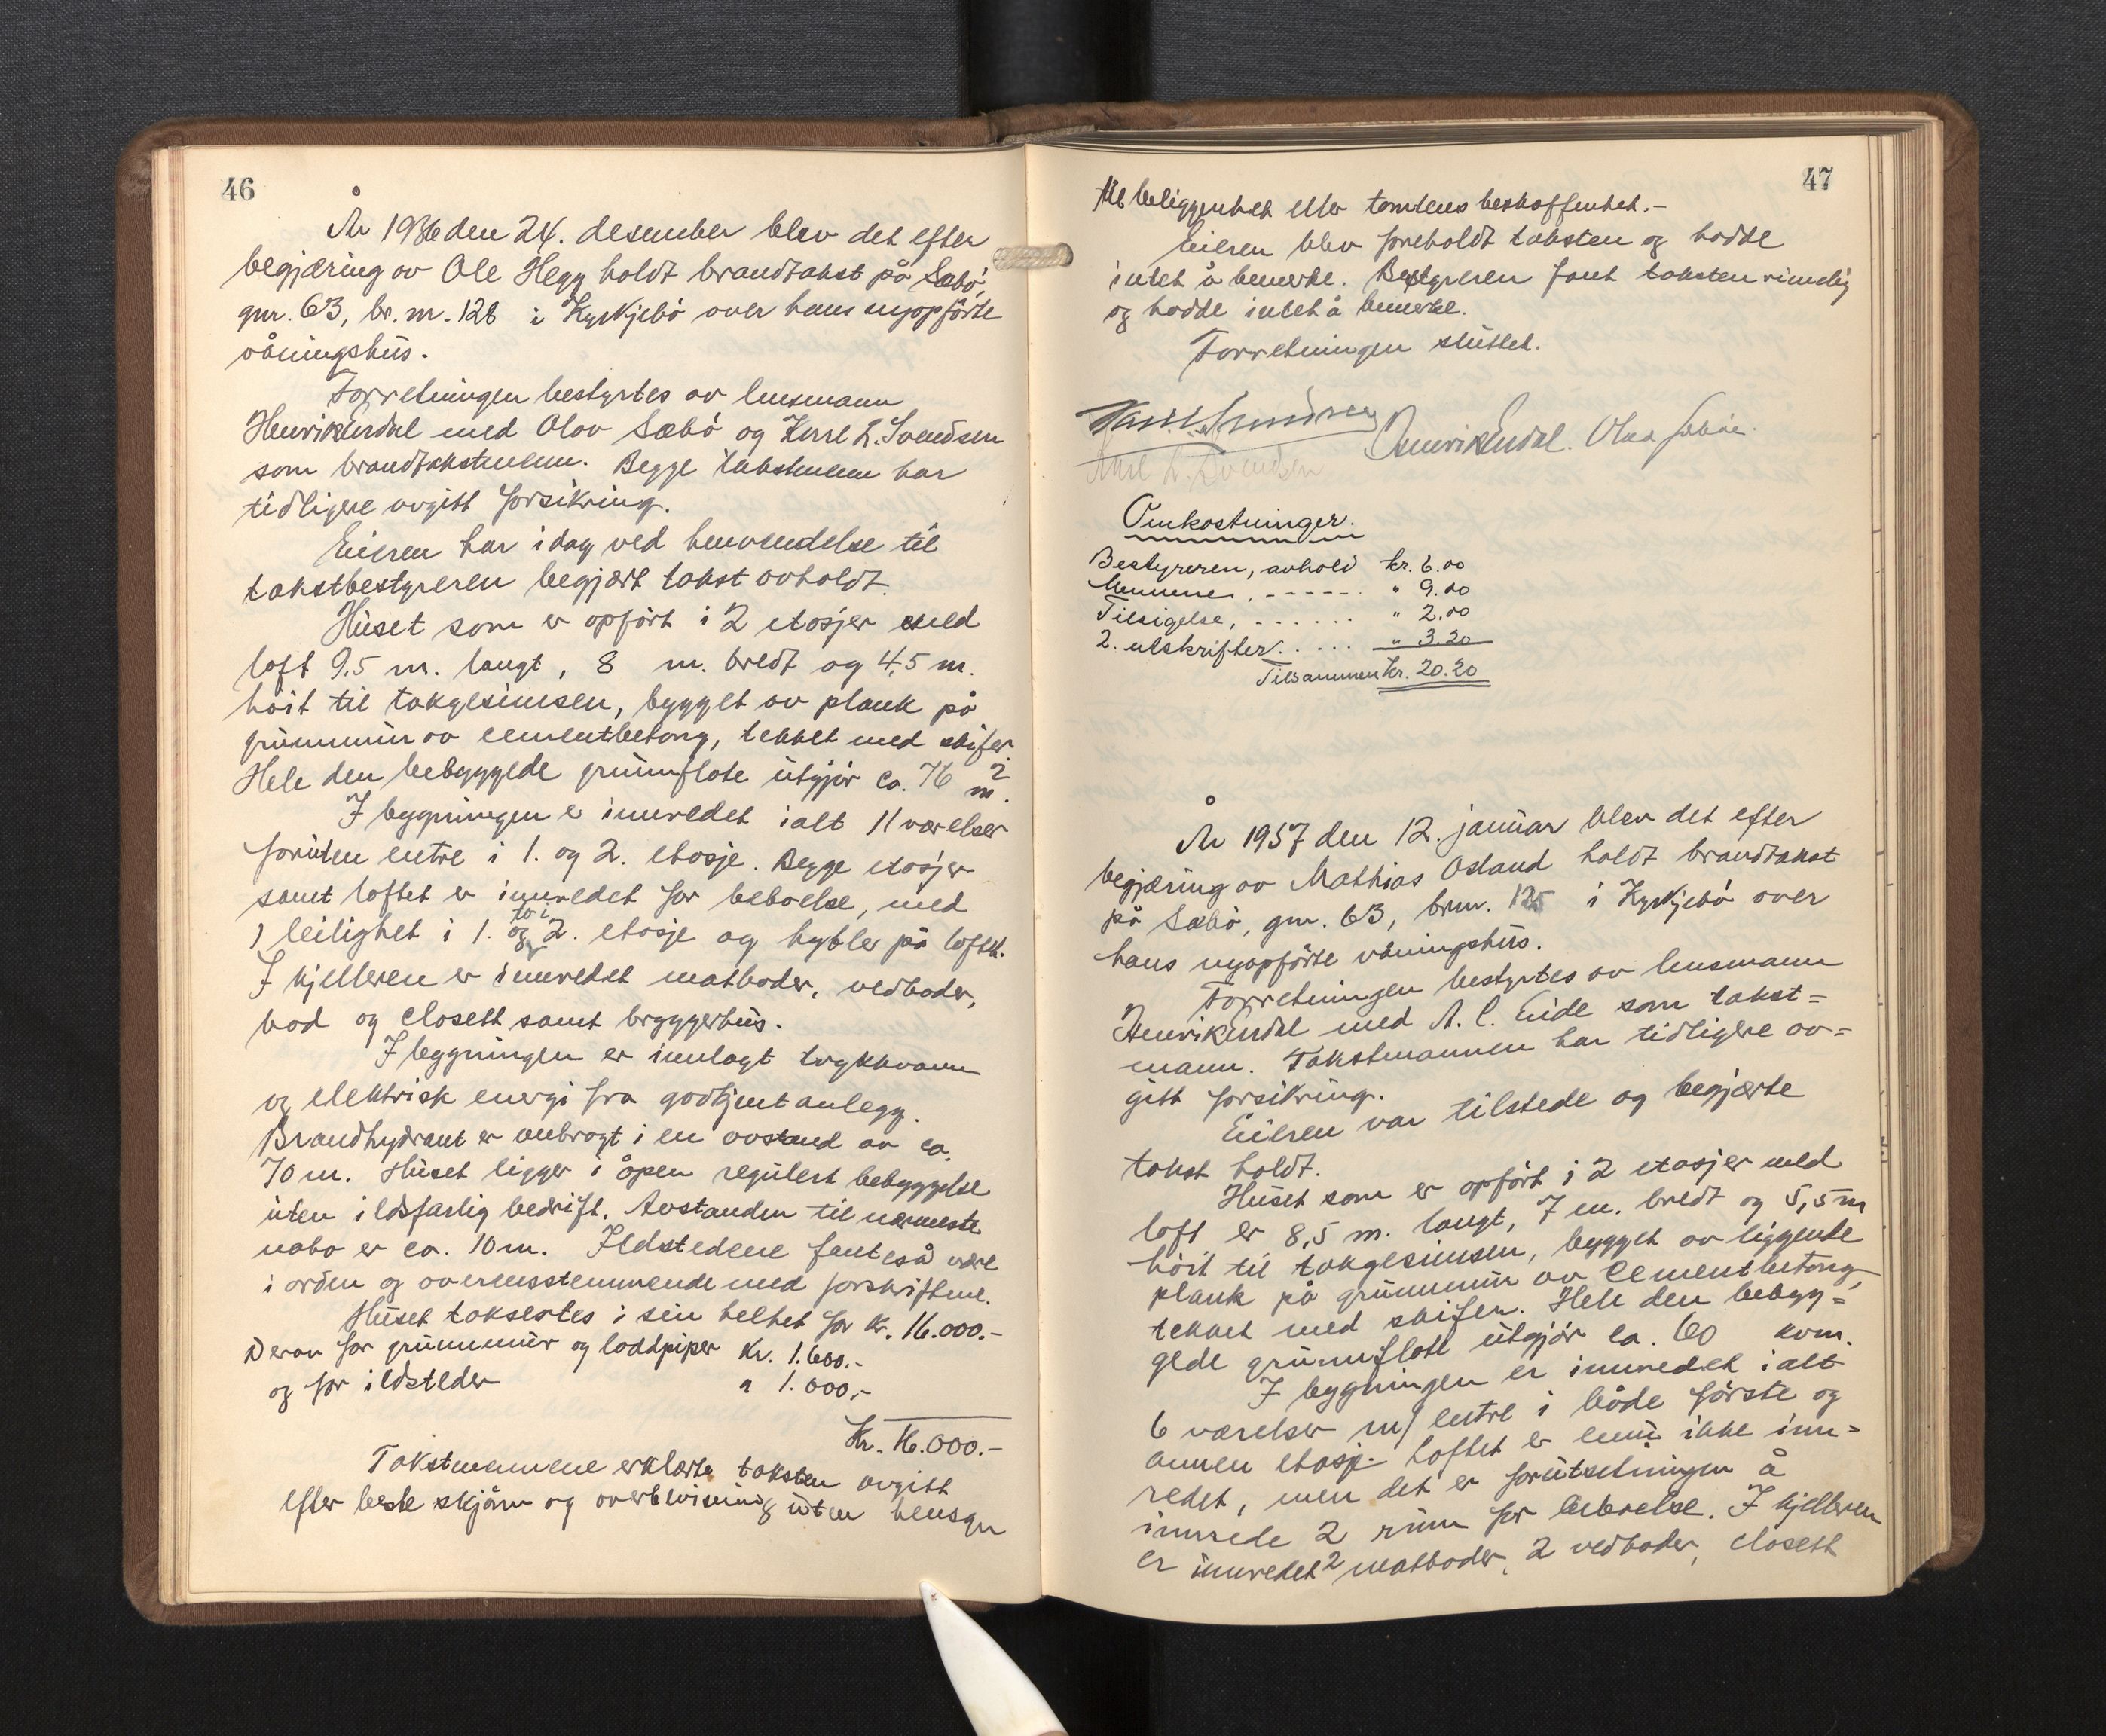 46
År 1936 den 24. desember blev det efter
begjæring av Ole Hegg holdt brandtakst på Sæbø,
gnr. 63, br. nr. 128 i Kyrkjebø over hans nyopførte
våningshus.
Forretningen bestyrtes av lensmann
Henrik Erdal med Olav Sæbø og Karl L. Svendsen
som brandtakstmenn. Begge takstmenn har
tidligere avgitt forsikring.
Eieren har idag ved henvendelse til
takstbestyreren begjært takst avholdt.
Huset som er opført i 2 etasjer med
loft 9,5 m. langt, 8 m. bredt og 4,5 m.
høit til takgesimsen, bygget av plank på
grunnmur av cementbetong, tekket med skifer.
Hele den bebyggede grunnflate utgjør ca. 76 m².
I bygningen er innredet ialt 11 værelser
foruten entre i 1. og 2. etasje. Begge etasjer
samt loftet er innredet for beboelse, med
1 leilighet i 1. og to i 2. etasje og hybler på loftet.
I kjelleren er innredet matboder, vedboder,
bod og closett samt bryggerhus.
I bygningen er innlagt trykkvann
og elektrisk energi fra godkjent anlegg.
Brandhydrant er anbragt i en avstand av ca.
70 m. Huset ligger i åpen regulert bebyggelse
uten ildsfarlig bedrift. Avstanden til nærmeste
nabo er ca. 10 m. Ildstedene fantes å være
i orden og overensstemmende med forskriftene.
Huset taksertes i sin helhet for kr. 16.000.-
Derav for grunnmur og loddpiper kr. 1.600.-
og for ildsteder " 1.000,-
Kr. 16.000.-
Takstmennene erklærte taksten avgitt
efter beste skjønn og overbevisning uten hensyn
47
til beliggenhet eller tomtens beskaffenhet.-
Eieren blev foreholdt taksten og hadde
intet å bemerke. Bestyreren fant taksten rimelig
og hadde intet å bemerke.
Forretningen sluttet.
Karl L. Svendsen Henrik Erdal. Olav Sæbøe.
Karl L. Svendsen
Omkostninger.
Bestyreren, avhold kr. 6.00
Mennene, - - - - - - " 9.00
Tilsigelse, . . . . . . " 2.00
2. utskrifter. . . . . " 3.20
Tilsammen kr. 20.20
År 1937 den 12. januar blev det efter
begjæring av Mathias Osland holdt brandtakst
på Sæbø, gnr. 63, brnr. 125 i Kyrkjebø over
hans nyopførte våningshus.
Forretningen bestyrtes av lensmann
Henrik Erdal med A. C. Eide som takst=
mann. Takstmannen har tidligere av=
gitt forsikring.
Eieren var tilstede og begjærte
takst holdt.
Huset som er opført i 2 etasjer med
loft er 8,5 m. langt, 7 m. bredt og 5,5 m
høit til takgesimsen, bygget av liggende
plank på grunnmur av cementbetong,
tekket med skifer. Hele den bebyg=
gede grunnflate utgjør ca. 60 kvm.
I bygningen er innredet ialt
6 værelser m/ entre i både første og
annen etasje. Loftet er ennu ikke inn=
redet, men det er forutsetningen å
innrede 2 rum for beboelse. I kjelleren
er innredet 2 matboder, 2 vedboder, closett